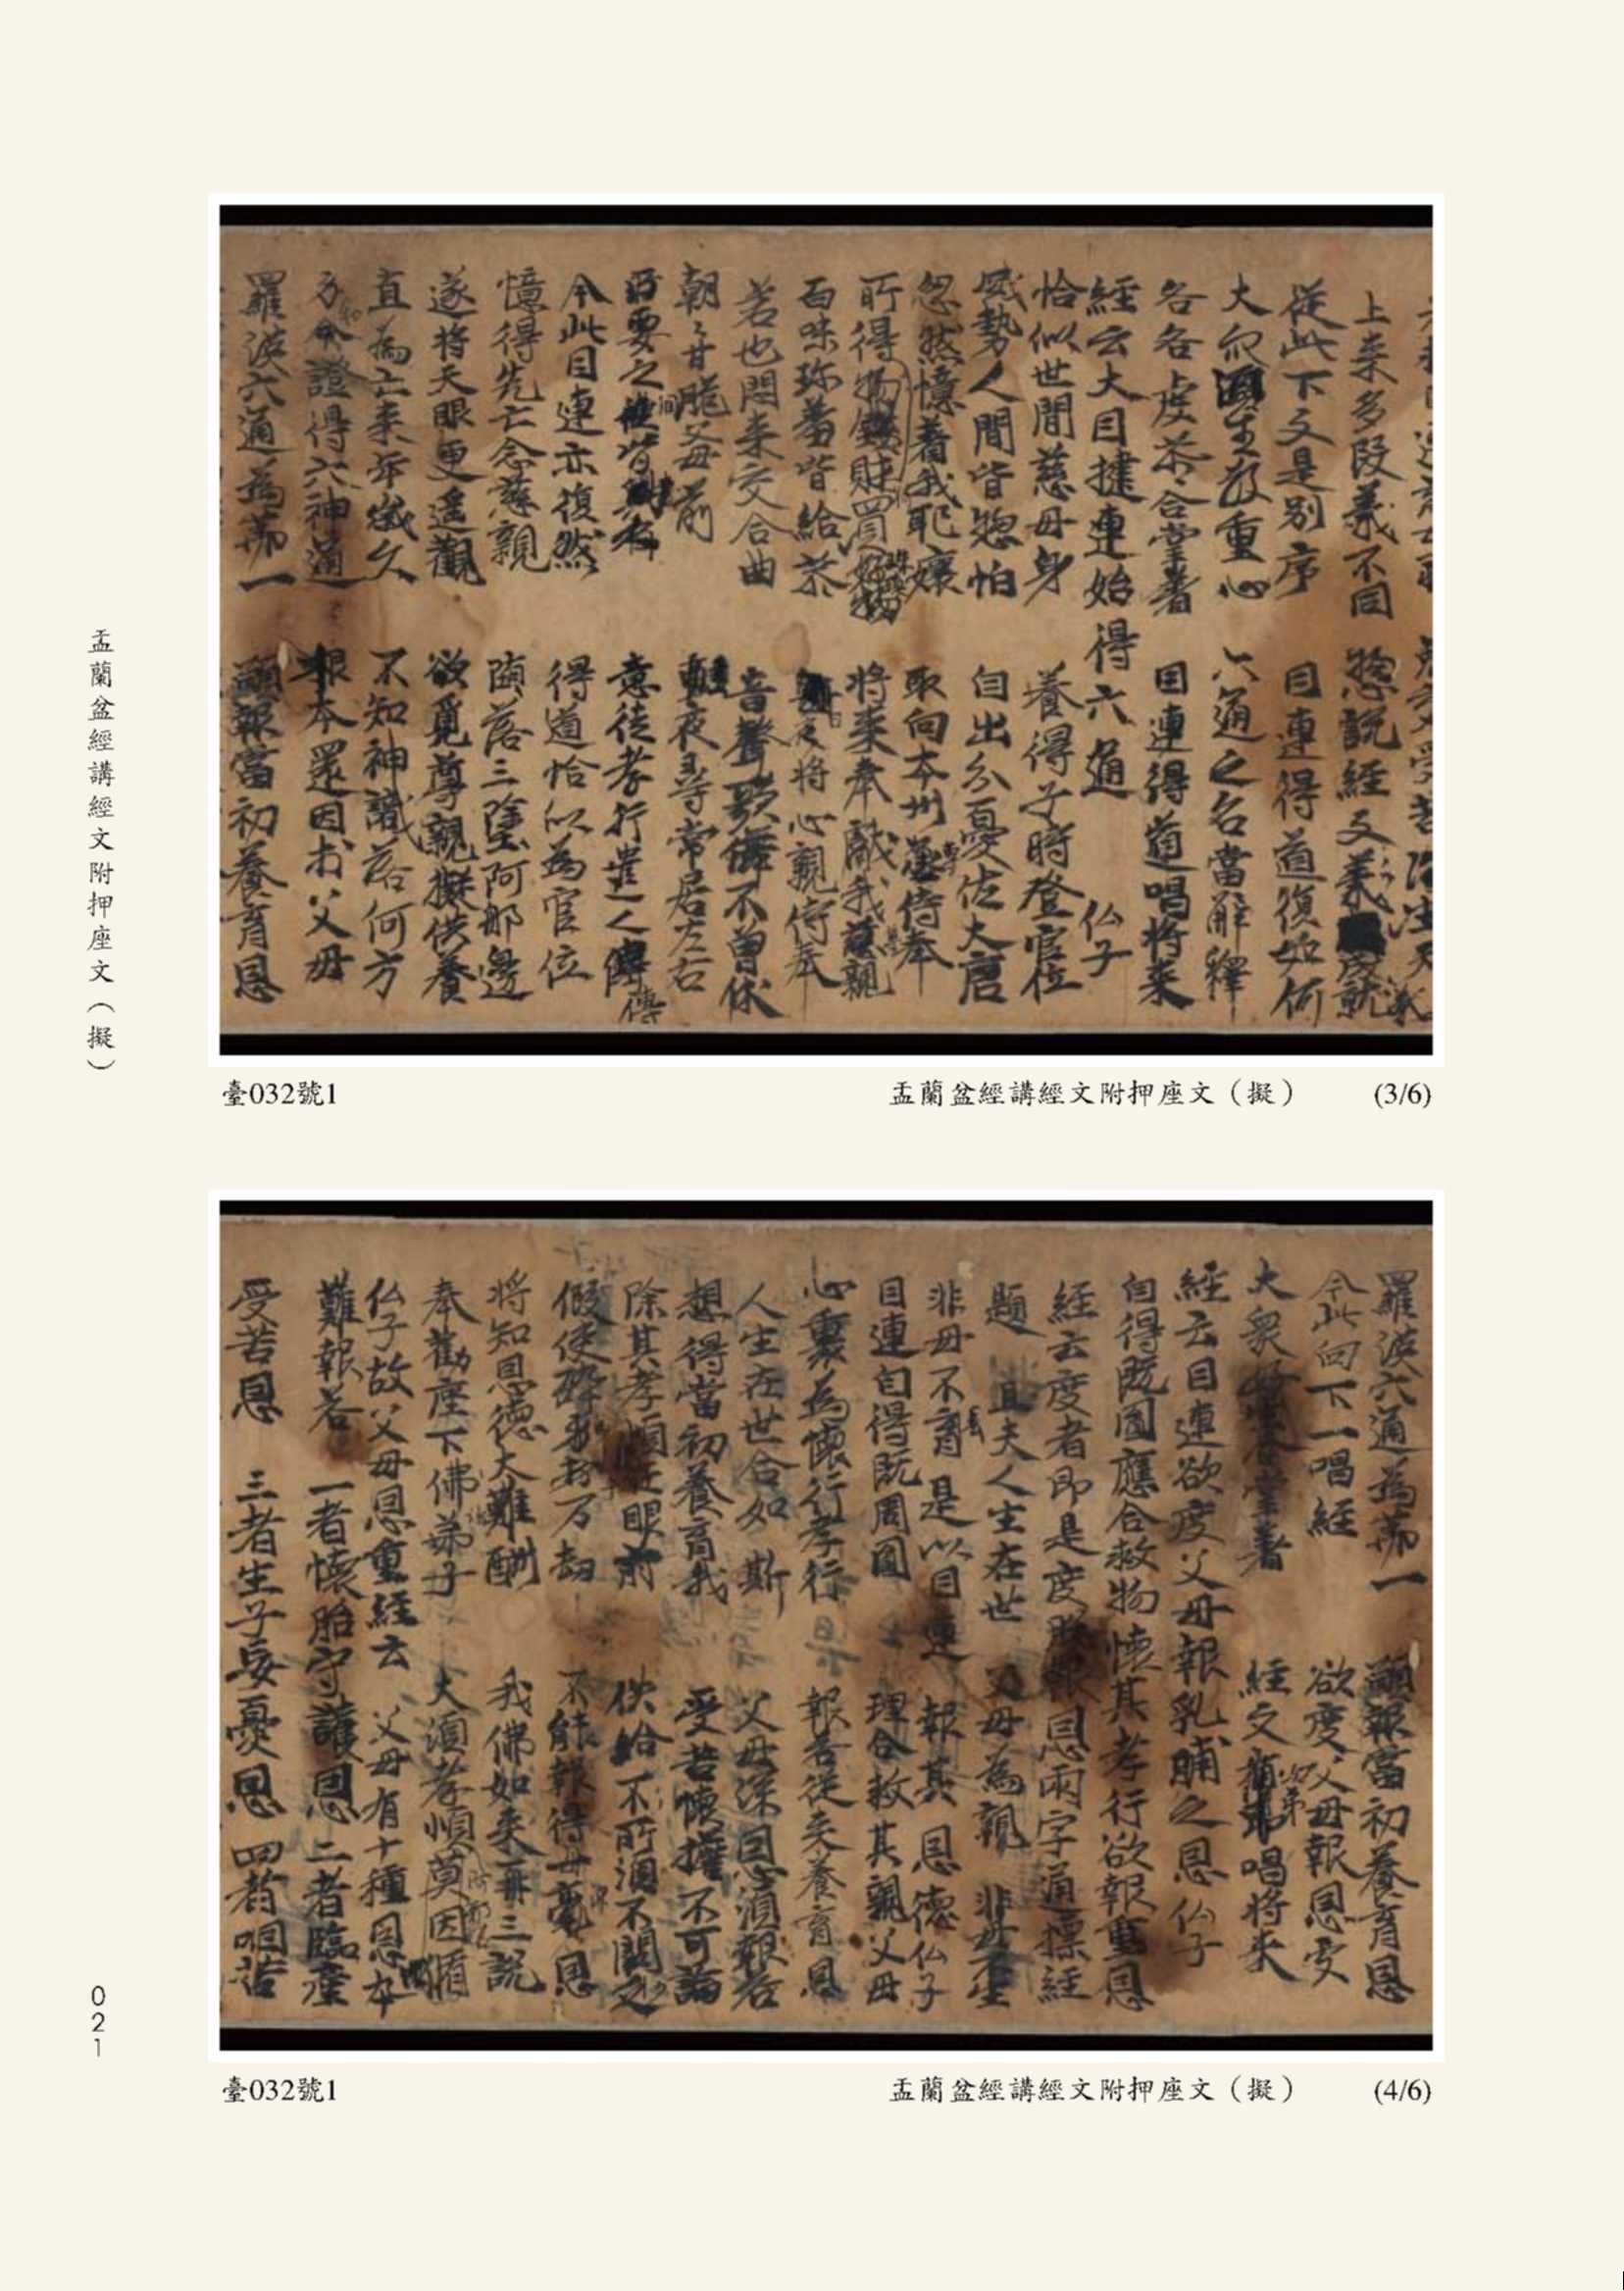 上來多段義不同　惣說經文義
從此下文是別序　目連得道復如何
大衆生敬重心　六通之名當解釋
各各虔恭合掌著　目連得道唱將來
經云大目揵連始得六通　仏子
恰似世間慈母身　養得子時登官位
威勢人間皆惣怕　自出分憂佐大唐
忽然憶著我耶孃　取向本州侍奉
所得物財買　將來奉獻我慈親
百味珍羞皆給恭　將心親侍奉
若也閑來交合曲　音聲歌儛不曾休
朝〻甘脆父母前　夜尋常居左右
要之皆　意徒孝行豈人傳
今此目連亦復然　得道恰似為官位
憶得先亡念慈親　墮落三塗阿那邊
遂將天眼更遥觀　欲覓尊親擬供養
直為亡來年歲久　不知神識落何方
證得六神通　根本還因於父母
羅漢六通為第一　報當初養育恩
臺032號1　盂蘭盆經講經文附押座文（擬）　(3/6)
羅漢六通為第一　報當初養育恩
今此向下一唱經　欲度父母報恩受
大衆掌著　經文唱將來
經云目連欲度父母報乳哺之恩　仏子
自得既圓應合救物懷其孝行欲報重恩
經云度者即是度恩兩字通標經
題　且夫人生在世　父母為親　非母不生
非母不育　是以目連　報其恩德仏子
目連自得既周圓　理合救其親父母
心裏為懷行孝行　報荅從來養育恩
人生在世合如斯　父母深恩必須報荅
想得當初養育我　受苦懷擔不可論
除其孝順眼前　供給不所須不闕之
假使碎身於万劫　不能報得母毫恩
將知恩德大難酬　我佛如來再三說
奉勸座下佛弟子　大須孝順莫因循
仏子故父母恩重經云　父母有十種恩
難報荅　一者懷胎守護恩　二者臨產
受苦恩　三者生子忘憂恩　四者咽苦
臺032號1　盂蘭盆經講經文附押座文（擬）　(4/6)
盂蘭盆經講經文附押座文（擬）
021